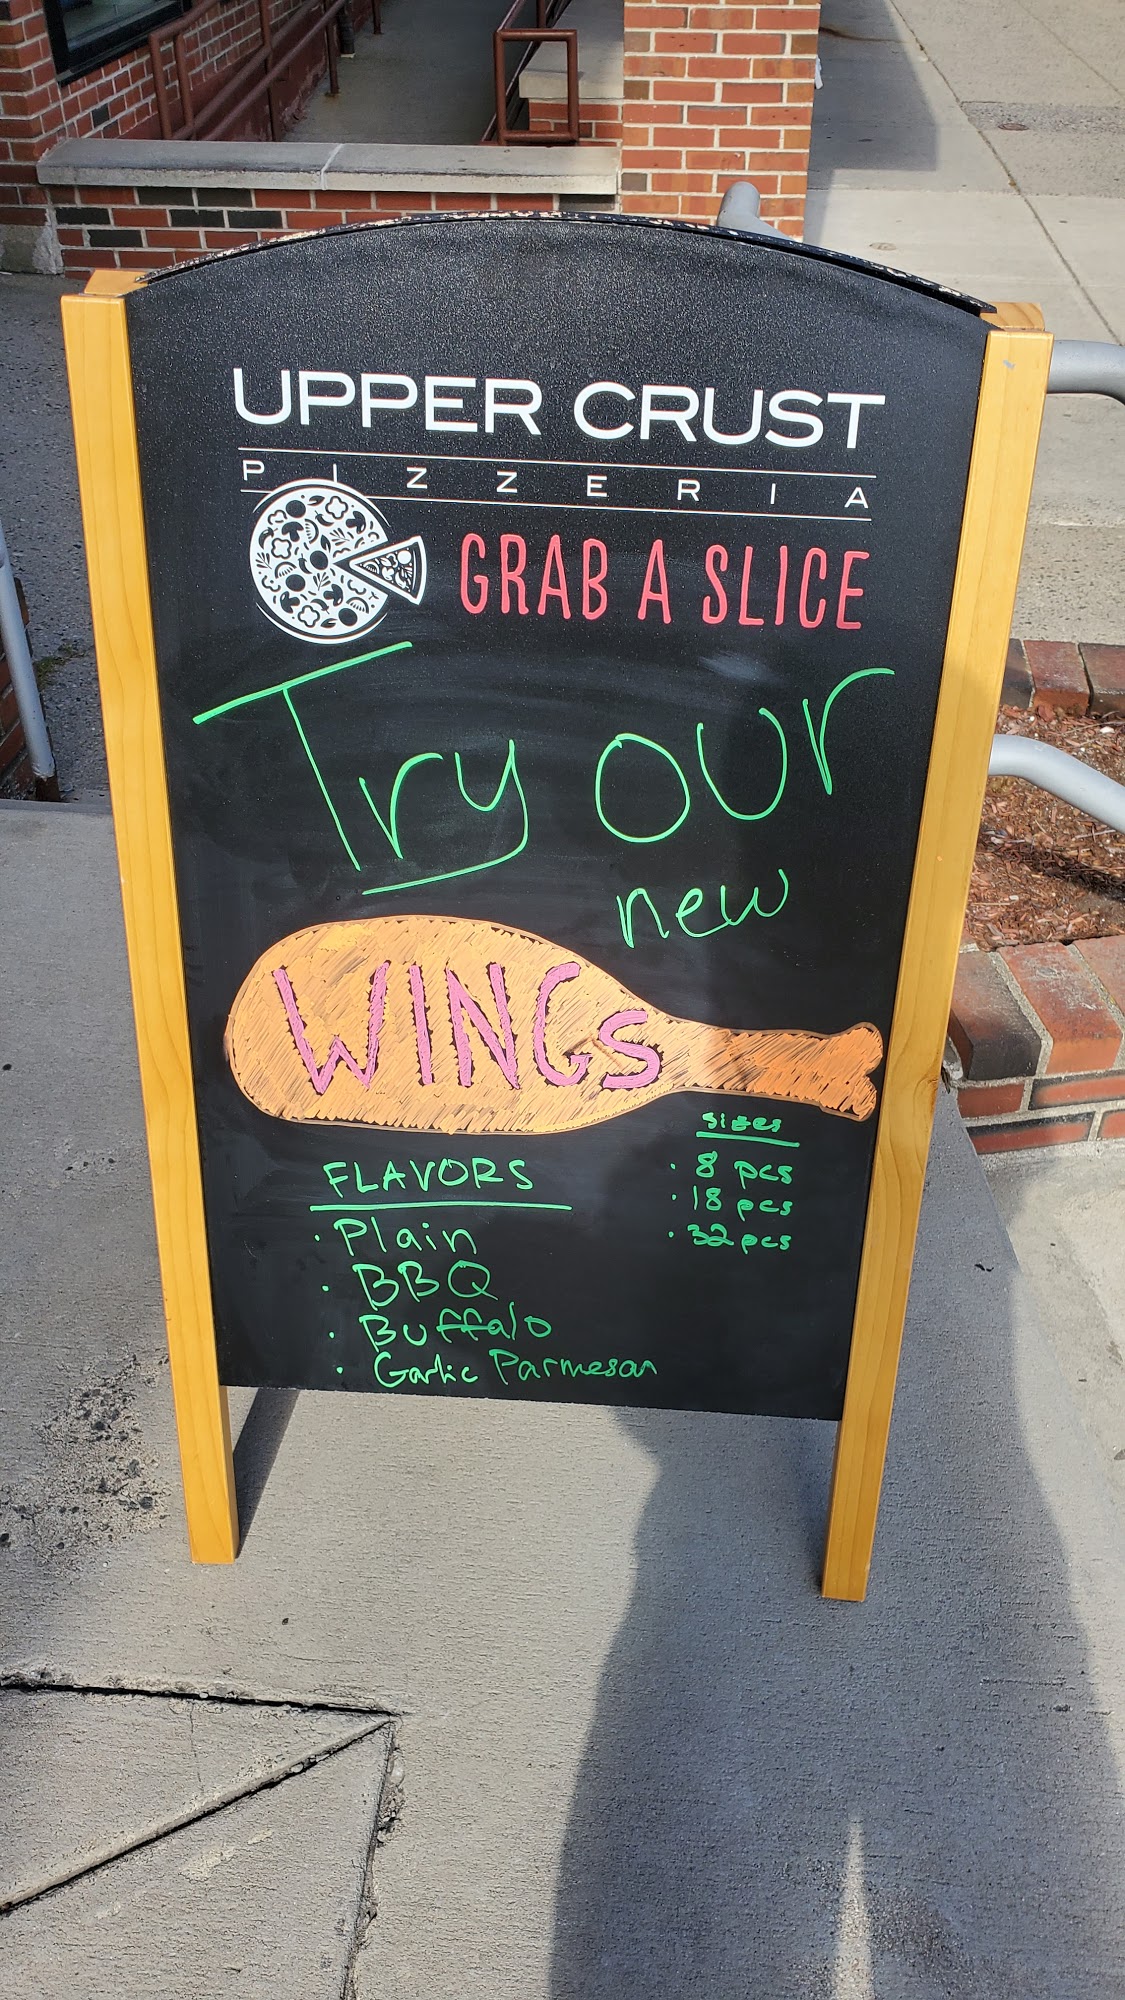 UPPER CRUST
PIZZERIA
GRAB A SLICE
Try our
new
WINGS
sizes
• 8 pcs
• 18 pcs
• 32 pcs
FLAVORS
• Plain
• BBQ
• Buffalo
• Garlic Parmesan